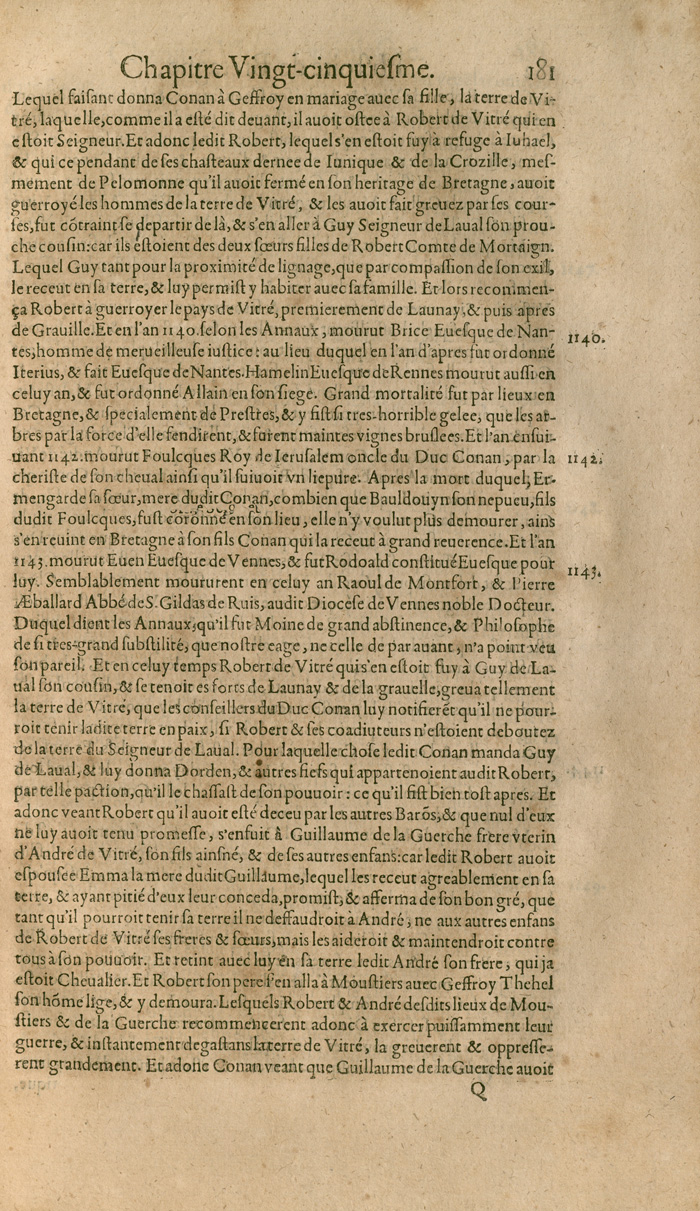 Chapitre Vingt-cinquiesme. 181
Lequel faisant donna Conan à Geffroy en mariage auec sa fille, la terre de Vi-
tré, laquelle, comme il a esté dit deuant, il auoit ostee à Robert de Vitré qui en
estoit Seigneur. Et adonc ledit Robert, lequel s'en estoit fuy à refuge à Iuhael,
& qui ce pendant de ses chasteaux dernee de Iunique & de la Crozille, mes-
mement de Pelomonne qu'il auoit fermé en son heritage de Bretagne, auoit
guerroyé les hommes de la terre de Vitré, & les auoit fait greuez par ses cour-
ses, fut cōtraint se departir de là, & s'en aller à Guy Seigneur de Laual son prou-
che cousin: car ils estoient des deux sœurs filles de Robert Comte de Mortaign.
Lequel Guy tant pour la proximité de lignage, que par compassion de son exil,
le receut en sa terre, & luy permist y habiter auec sa famille. Et lors recommen-
ça Robert à guerroyer le pays de Vitré, premierement de Launay, & puis apres
de Grauille. Et en l'an 1140. selon les Annaux, mourut Brice Euesque de Nan-
1140.
tes, homme de merueilleuse iustice: au lieu duquel en l'an d'apres fut ordonné
Iterius, & fait Euesque de Nantes. Hamelin Euesque de Rennes mourut aussi en
celuy an, & fut ordonné Allain en son siege. Grand mortalité fut par lieux en
Bretagne, & specialement de Prestres, & y fist si tres-horrible gelee, que les ar-
bres par la force d'elle fendirent, & furent maintes vignes bruslees. Et l'an ensui-
uant 1142. mourut Foulcques Roy de Ierusalem oncle du Duc Conan, par la
1142.
cheriste de son cheual ainsi qu'il suiuoit vn liepure. Apres la mort duquel, Er-
mengarde sa sœur, mere dudit Conan, combien que Bauldouyn son nepueu, fils
dudit Foulcques, fust coronné en son lieu, elle n'y voulut plus demourer, ains
s'en reuint en Bretagne à son fils Conan qui la receut à grand reuerence. Et l'an
1143. mourut Euen Euesque de Vennes, & fut Rodoald constitué Euesque pour
1143.
luy. Semblablement moururent en celuy an Raoul de Montfort, & Pierre
Æballard Abbé de S. Gildas de Ruis, audit Diocese de Vennes noble Docteur.
Duquel dient les Annaux, qu'il fut Moine de grand abstinence, & Philosophe
de si tres-grand substilité, que nostre eage, ne celle de par auant, n'a point veu
son pareil. Et en celuy temps Robert de Vitré qui s'en estoit fuy à Guy de La-
ual son cousin, & se tenoit es forts de Launay & de la grauelle, greua tellement
la terre de Vitré, que les conseillers du Duc Conan luy notifierēt qu'il ne pour-
roit tenir ladite terre en paix, si Robert & ses coadiuteurs n'estoient deboutez
de la terre du Seigneur de Laual. Pour laquelle chose ledit Conan manda Guy
de Laual, & luy donna Dorden, & autres fiefs qui appartenoient audit Robert,
par telle paction, qu'il le chassast de son pouuoir: ce qu'il fist bien tost apres. Et
adonc veant Robert qu'il auoit esté deceu par les autres Barōs, & que nul d'eux
ne luy auoit tenu promesse, s'enfuit à Guillaume de la Guerche frere vterin
d'André de Vitré, son fils ainsné, & de ses autres enfans: car ledit Robert auoit
espousee Emma la mere dudit Guillaume, lequel les receut agreablement en sa
terre, & ayant pitié d'eux leur conceda, promist, & afferma de son bon gré, que
tant qu'il pourroit tenir sa terre il ne deffaudroit à André, ne aux autres enfans
de Robert de Vitré ses freres & sœurs, mais les aideroit & maintendroit contre
tous à son pouuoir. Et retint auec luy en sa terre ledit André son frere, qui ja
estoit Cheualier. Et Robert son pere s'en alla à Moustiers auec Geffroy Thehel
son hōme lige, & y demoura. Lesquels Robert & André desdits lieux de Mou-
stiers & de la Guerche recommencerent adonc à exercer puissamment leur
guerre, & instantement degastans la terre de Vitré, la greuerent & oppresse-
rent grandement. Et adonc Conan veant que Guillaume de la Guerche auoit
Q